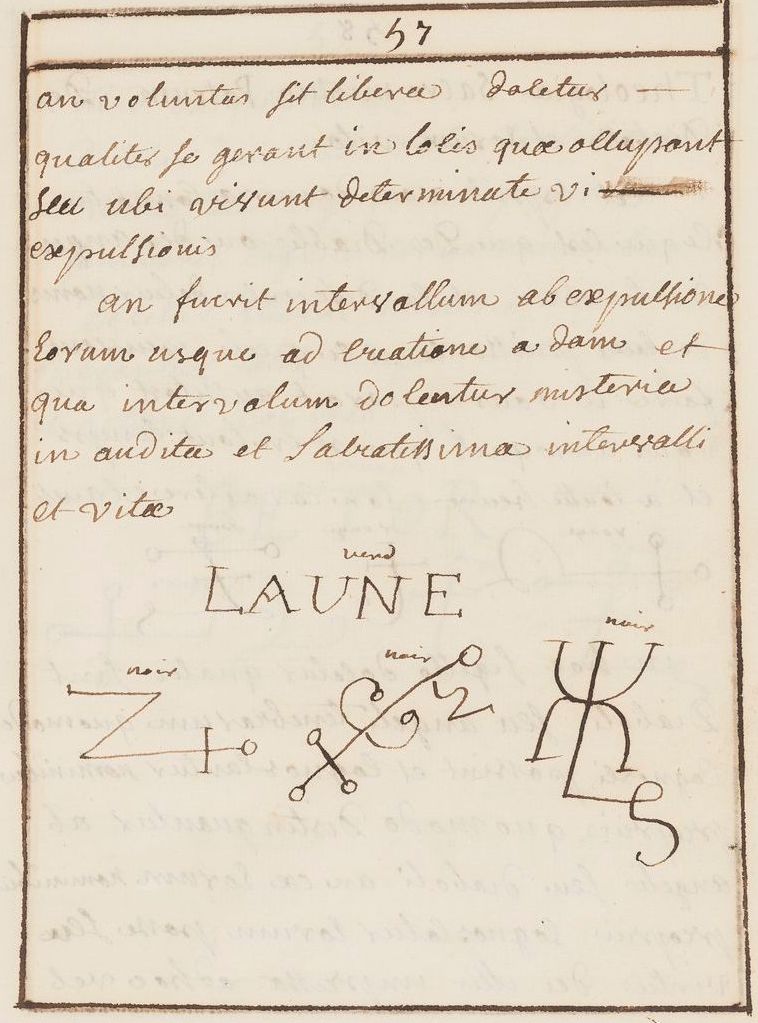 57
an voluntas sit libera docetur —
qualiter se gerant in locis quæ occupant
seu ubi vivunt determinate vi
expulsionis
an fuerit intervallum ab expulsione
Eorum usque ad creatione a dam et
qua intervolum docentur misteria
in audita et Sacratissima intervalli
et vitæ
verd
LAUNE
noir
noir
noir